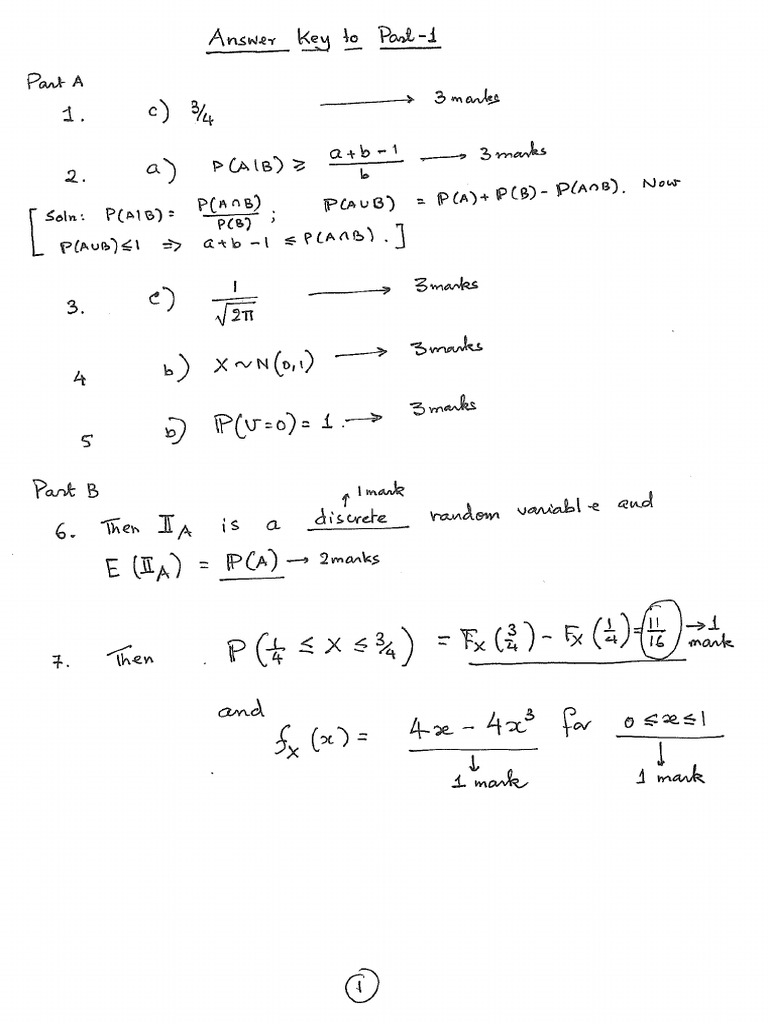 Answer Key to Part-1
Part A
1. c) 3/4 ⟶ 3 marks
2. a) P(A|B) ≥ (a+b-1)/b ⟶ 3 marks
[ Soln: P(A|B) = P(A∩B)/P(B) ; P(A∪B) = P(A)+P(B)-P(A∩B). Now
P(A∪B)≤1 ⇒ a+b-1 ≤ P(A∩B). ]
3. c) 1/√2π ⟶ 3 marks
4 b) X~N(0,1) ⟶ 3 marks
5 b) ℙ(U=0)=1. ⟶ 3 marks
Part B
↑ 1 mark
6. Then 𝕀A is a discrete random variable and
E(𝕀A) = ℙ(A) → 2 marks
7. Then ℙ(1/4 ≤ X ≤ 3/4) = FX(3/4) - FX(1/4) = 11/16 → 1 mark
and
fX(x) = 4x - 4x³ for 0≤x≤1
↓ ↓
1 mark 1 mark
1